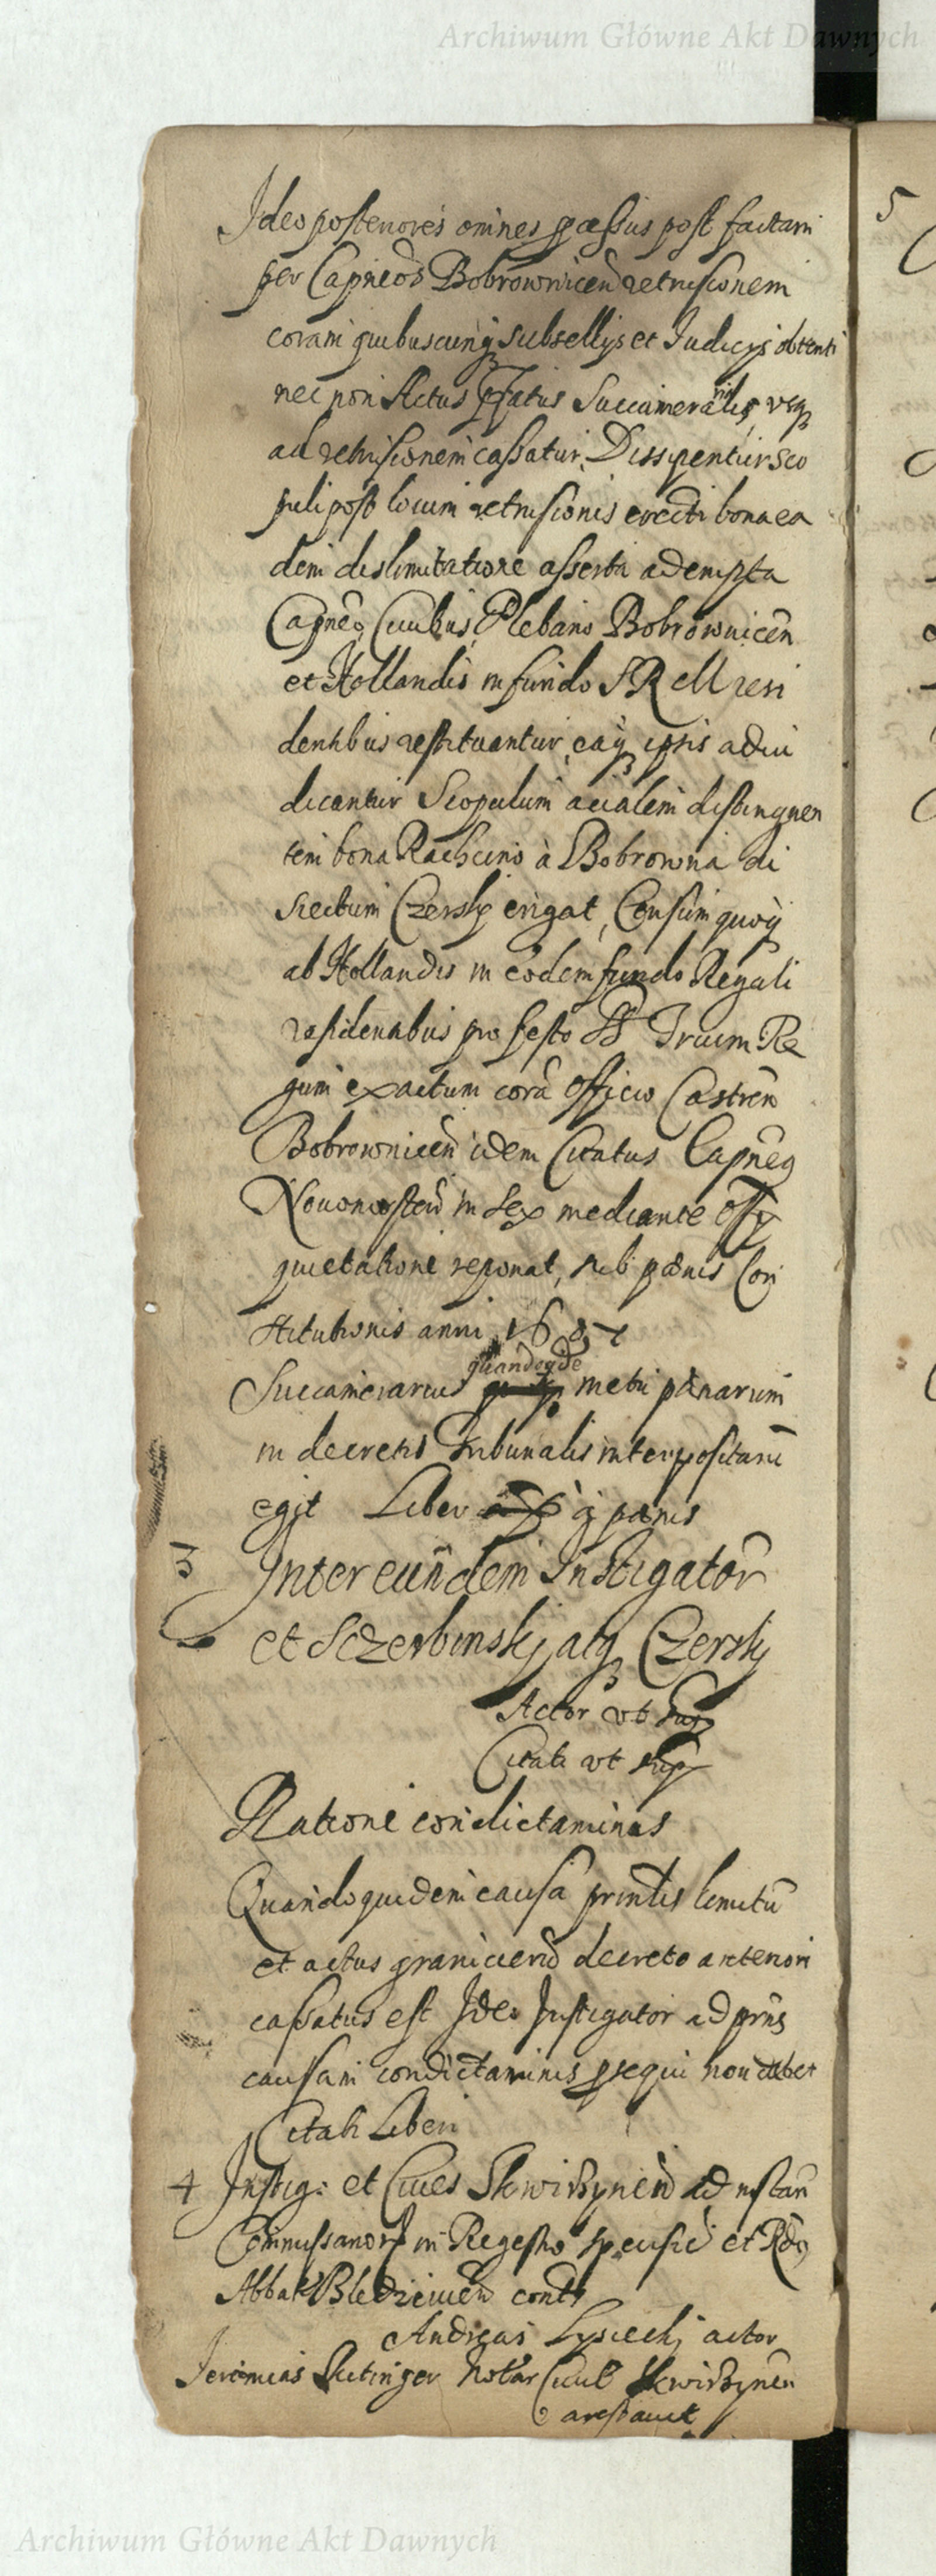 Archiwum Główne Akt Dawnych
Ideo posteriores omnes processus post factam
per Capneos Bobrownicen retrusionem
coram quibuscunq subsellijs et Iudicijs obtenti
nec non Actus pfatus Succamerarialis, vsq
ad retrusionem cassatur, Dissipentur sco
puli post locum retrusionis erecti bona ea
dem deslimitatione asserta adempta
Capneo, Ciuibus, Plebano Bobrownicen
et Hollandis in fundo S R M resi
dentibus restituantur, eaq ipsis adiu
dicantur Scopulum acialem distinguen
tem bona Rachcino à Bobrowna di
rectum Czersky erigat, Censum quoq
ab Hollandis in eodem fundo Regali
residentibus pro festo SS Trium Re
gum exactum cora Officio Castren
Bobrownicen idem Citatus Capneo
in sex mediante
quietatione reponat, sub pænis Con
stitutionis anni
quandoqde
Succamerarius metu pænarum
in decretis Tribunalis interpositaru
egit Liber à pænis
3 Inter eundem Instigator
et Sczerbinsky atq Czersky
Actor vt sup
Citati vt sup
Ratione condictaminis
Quandoquidem causa printis limitu
et actus granicien decreto anteriori
cassatus est Ideo Instigator ad prns
causam condictaminis psequi non debet
Citati Liberi
4 Instig: et Ciues Skwirzynen ad instan
Commissarior in Regestro et Rdo
Abbati Bledzewien contt
Andreas Lysiecki actor
Jeremias Notar Ciuit Skwirzynen
arestauit
5
Archiwum Główne Akt Dawnych